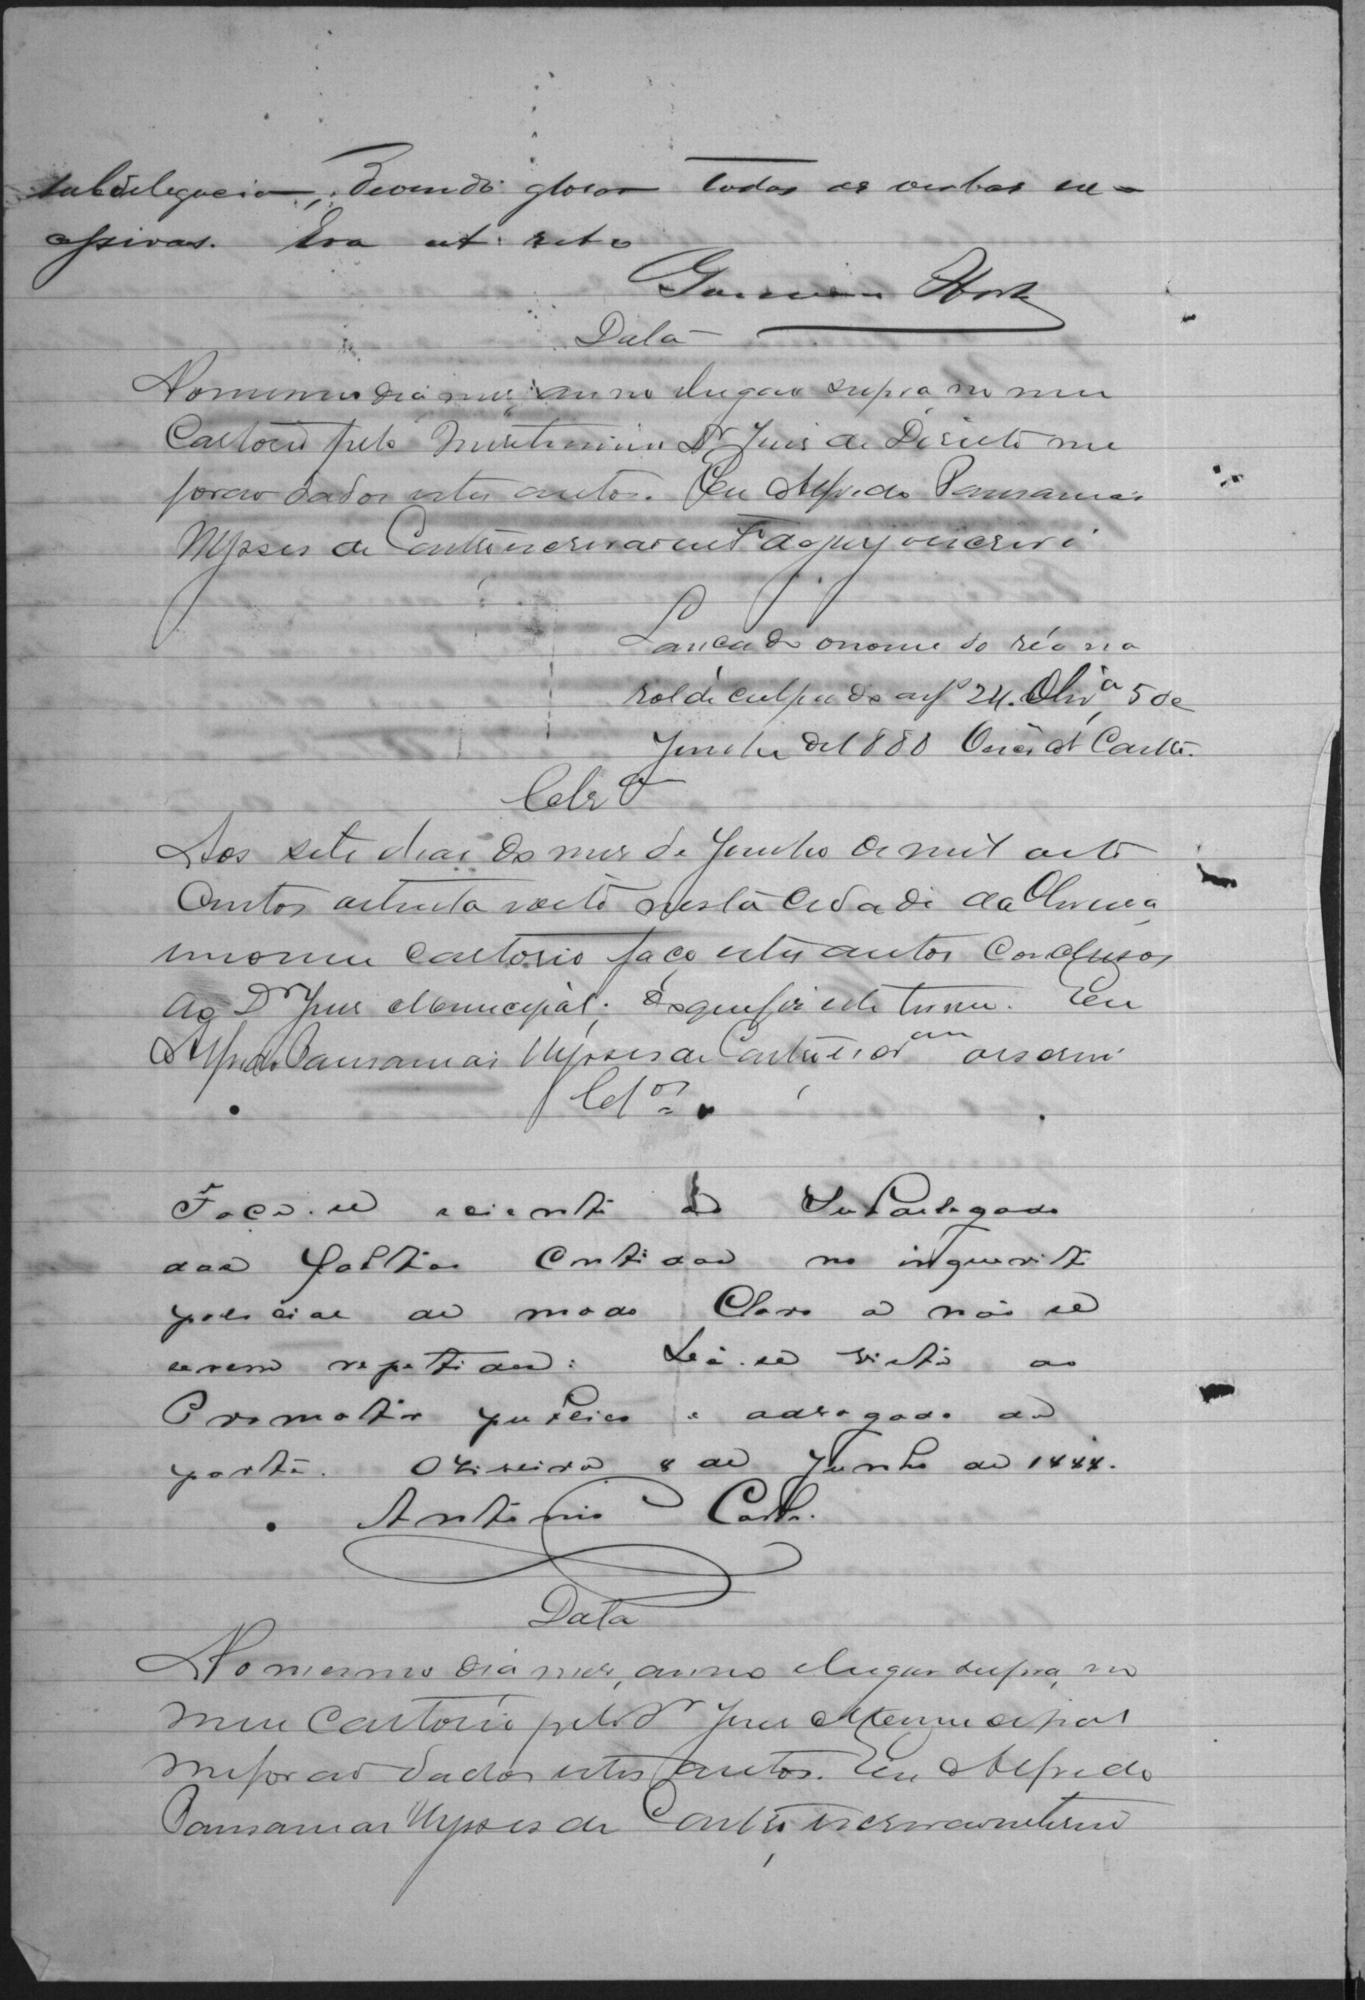 subdelegacia, devendo glosar todas as verbas ex-
cessivas. Era ut retro
Data
No mesmo dia mes, anno e lugar supra no meu
Cartorio pelo Meretissimo Dr Juis de Direito me
forão dados estes autos. Eu Alfredo Pansanias
Ulysses de Castro escrivão int.º do jury o escrevi
Lançado o nome do réo no
rol de culpados a fs 24. Olivª, 5 de
Junho de 1888 O escrivão Castro.
Clsão
Aos sete dias do mes de Junho de mil oito
centos oitenta e oito nesta Cidade da Oliveira
em o meu cartorio faço estes autos conclusos
ao Dr Juis Municipal; do que fis este termo. Eu
Alfredo Pansanias Ulysses de Castro escrivão o escrevi
Clos
Faça-se sciente ao Subdelegado
das faltas contidas no inquerito
policial de modo claro a não se
serem repetidas. Dê-se vista ao
Promotor publico e advogado da
parte. Oliveira 8 de Junho de 1888.
Antonio Carlos
Data
No mesmo dia mes, anno e lugar supra, no
meu Cartorio pelo Dr Juis Municipal
me forão dados estes autos. Eu Alfredo
Pansanias Ulysses de Castro escrivão interino